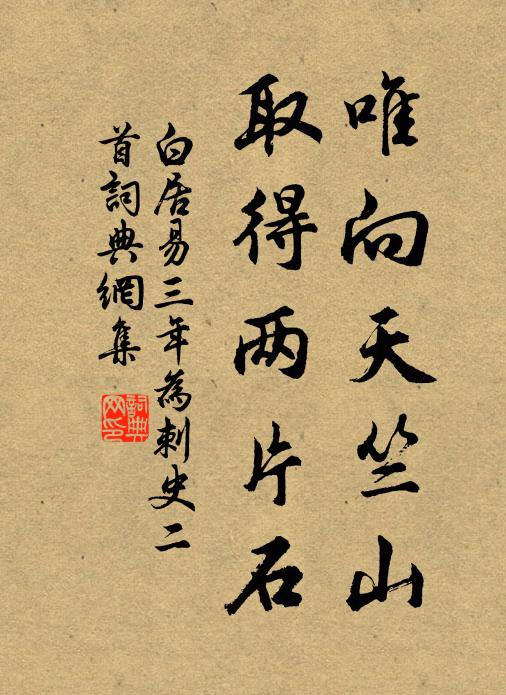 唯向天竺山
取得两片石
白居易三年為刺史二
首詞典網集
詞典
网印